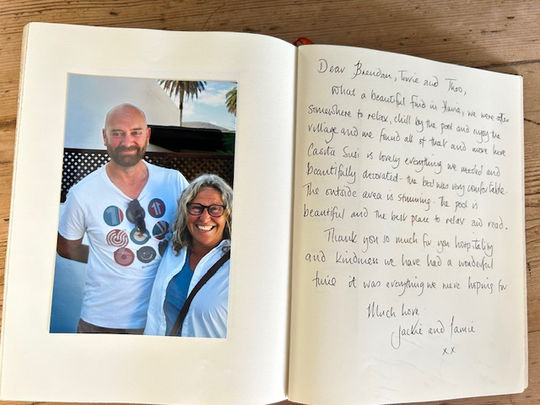 Dear Brendan, Terrie and Thos,
What a beautiful find in Haria, we were after
somewhere to relax, chill by the pool and enjoy the
village and we found all of that and more here
Casita Susi is lovely everything we needed and
beautifully decorated - the bed was very comfortable.
The outside area is stunning - the pool is
beautiful and the best place to relax and read.
Thank you so much for you hospitality
and kindness we have had a wonderful
time it was everything we were hoping for
Much love
Jackie and Jamie
x x